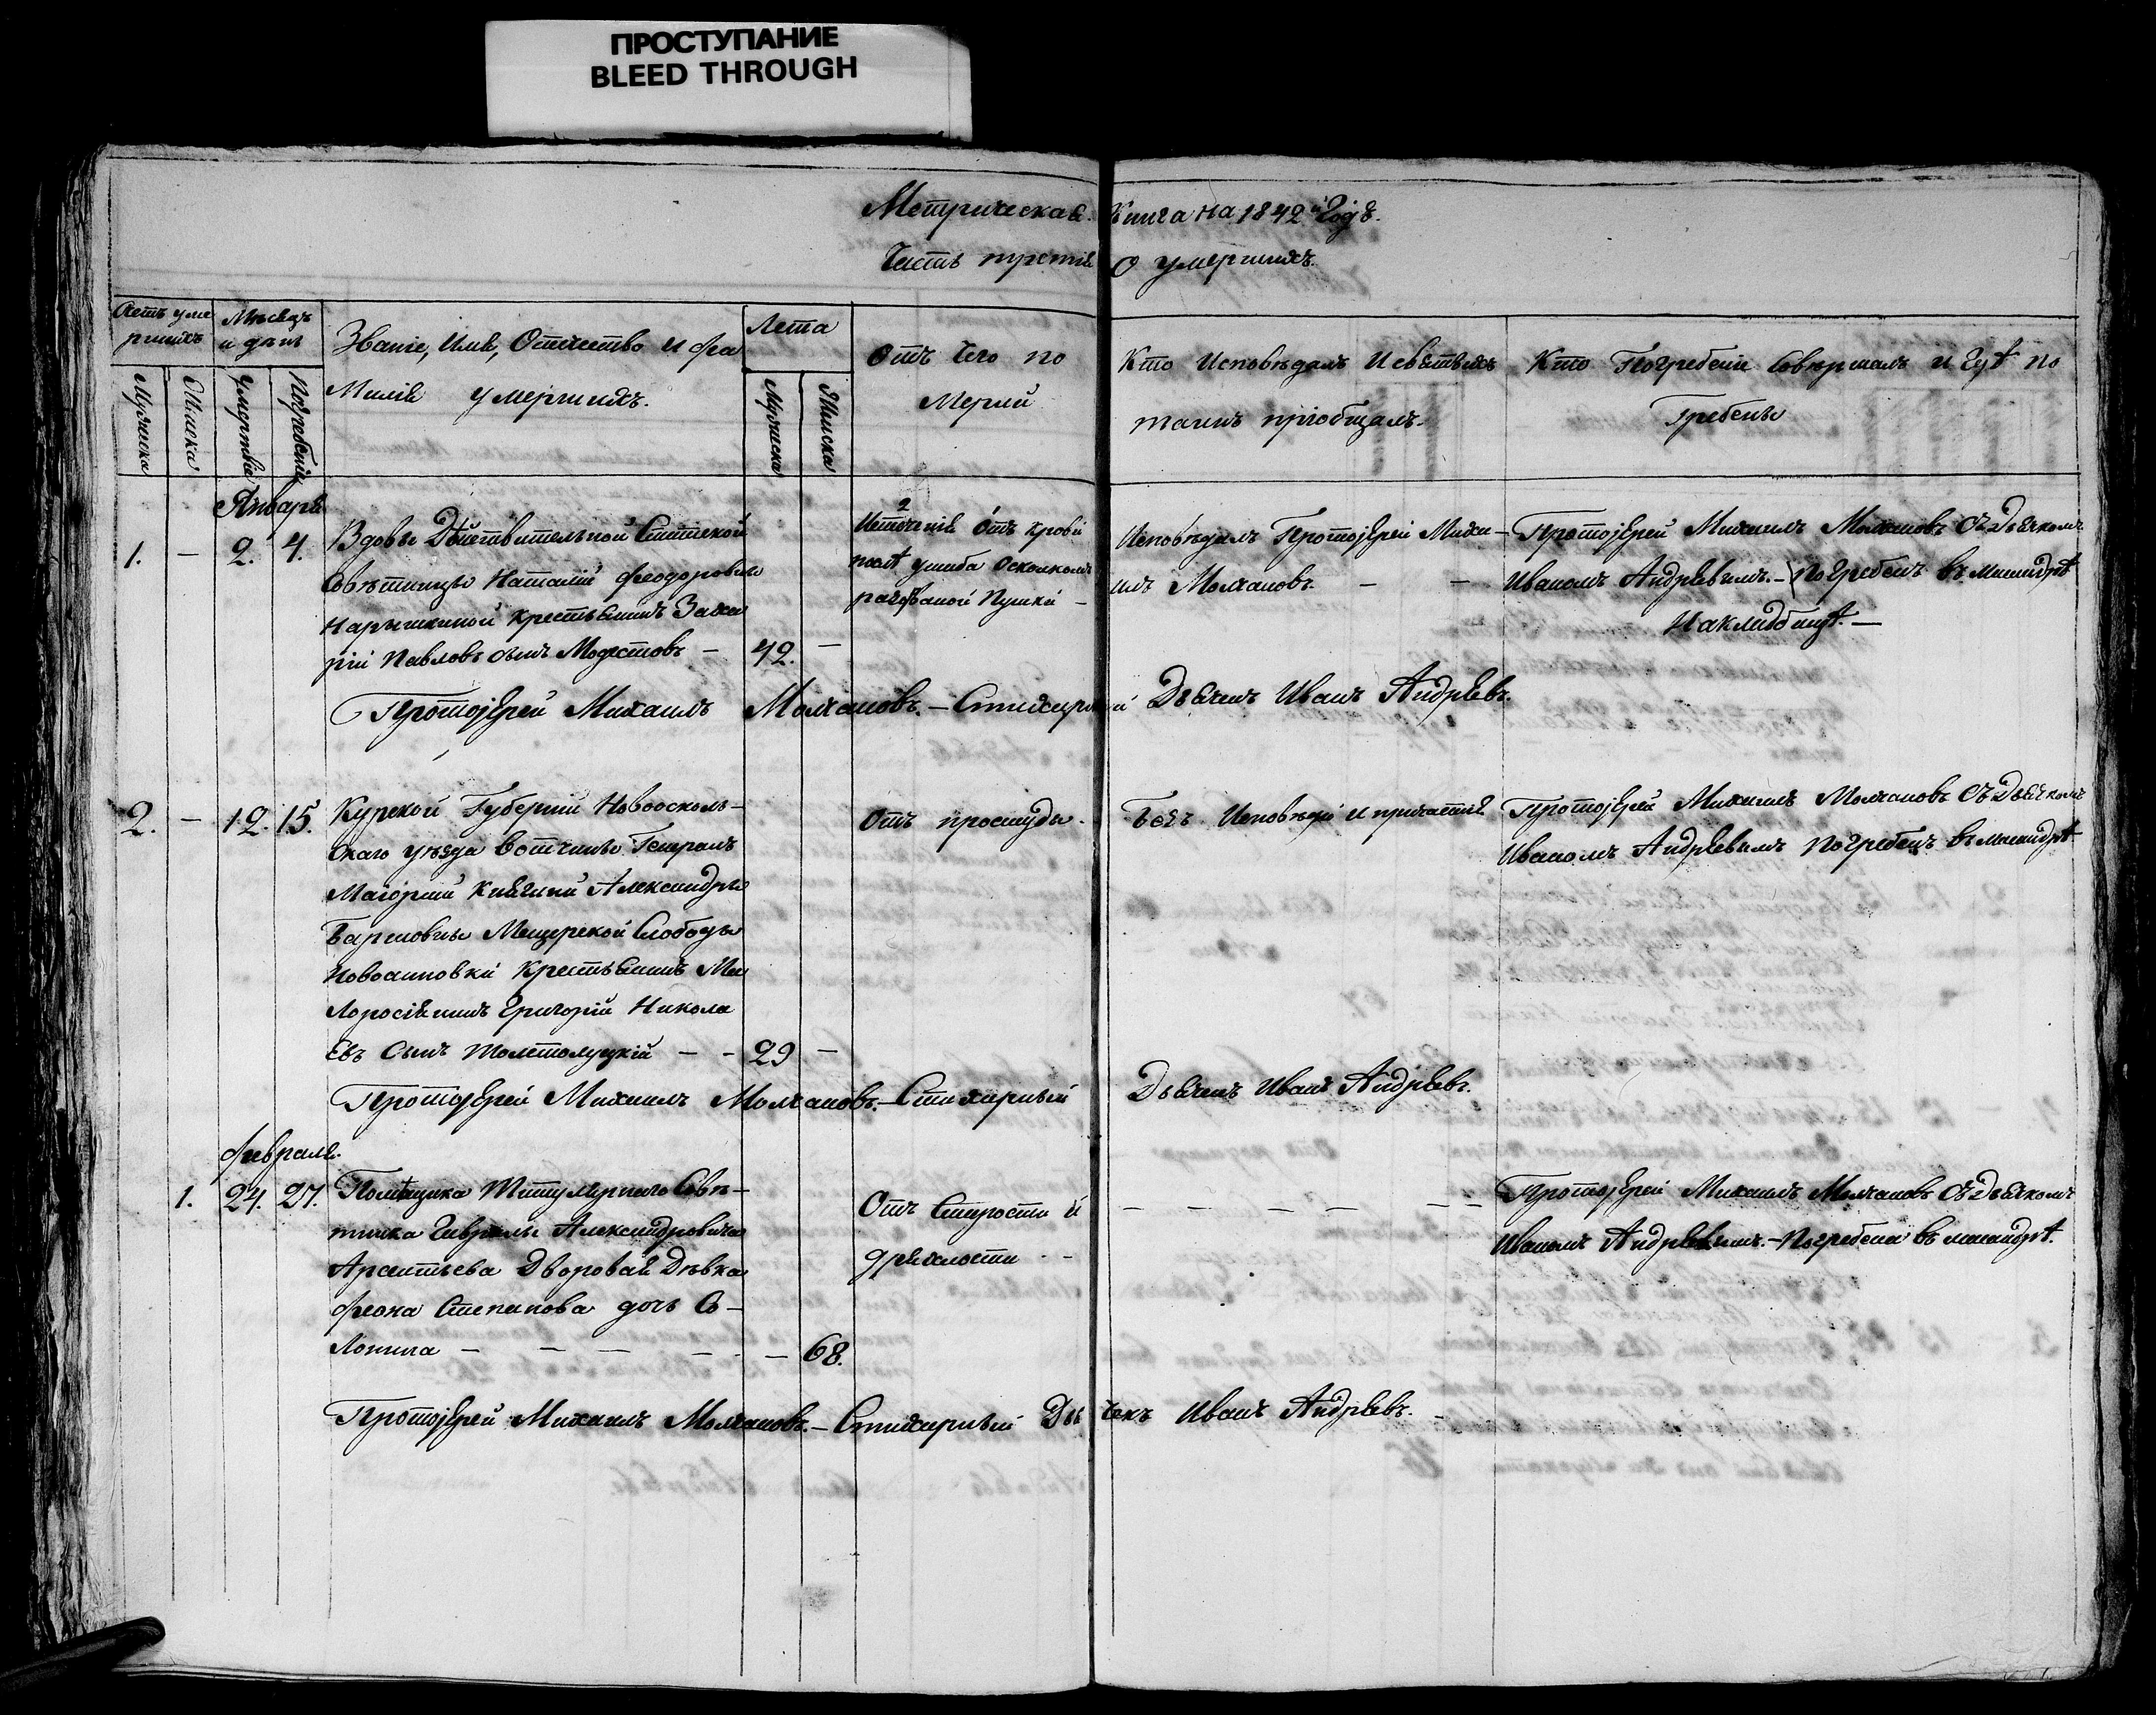 ПРОСТУПАНИЕ
BLEED THROUGH
Метрическая Книга на 1842 й Годъ.
Часть третія О умершихъ.
Счетъ уме
ршихъ
Мѣсяцъ
и день
Званіе, Имя, Отечество и фа
милія умершихъ.
Лета
Отъ чего по
мерли
Кто Исповѣдалъ И святыхъ
таинъ пріобщалъ.
Кто Погребеніе Совершалъ и Гдѣ по
Гребены
Мужеска
Женска
Умертвія
Погребенія
Мужеска
Женска
Января
1. — 2. 4.
Вдовы Дѣйствительной Статской
Совѣтницы Наталіи Феодоровны
Нарышкиной крестьянинъ Заха
рій Павловъ сынъ Модестовъ — 42. —
Истеченія отъ крови
послѣ ушиба осколкомъ
разорваной Пушки —
Исповѣдалъ Протоіерей Миха—
илъ Молчановъ. — —
Протоіерей Михаилъ Молчановъ Съ Дьячкомъ
Иваномъ Андреевымъ. — Погребенъ въ Масандрѣ
На кладбищѣ. —
Протоіерей Михаилъ Молчановъ. — Стихарный Дьячекъ Иванъ Андреевъ.
2. — 12. 15.
Курской Губерніи Новоосколь—
скаго уѣзда вотчины Генералъ
Маіорши Княгини Александры
Борисовны Мещерской Слободы
Новоивановки Крестьянинъ Ма
лоросіянинъ Григорій Никола
евъ Сынъ Толстолуцкій — — 29 —
Отъ простуды.
Безъ Исповѣди И причастія
Протоіерей Михаилъ Молчановъ Съ Дьячкомъ
Иваномъ Андреевымъ Погребенъ въ Масандрѣ
Протоіерей Михаилъ Молчановъ. — Стихарный Дьячекъ Иванъ Андреевъ.
Февраля.
1. 24. 27.
Помѣщика Титулярнаго Совѣ—
тника Гаврилы Александровича
Арсентьева Дворовая Дѣвка
Фекла Степанова дочь Со—
лонина — — — — — 68.
Отъ Старости и
дряхлости —
— — — — — —
Протоіерей Михаилъ Молчановъ Съ Дьячкомъ
Иваномъ Андреевымъ. — Погребена въ масандрѣ.
Протоіерей Михаилъ Молчановъ. — Стихарный Дьячекъ Иванъ Андреевъ.